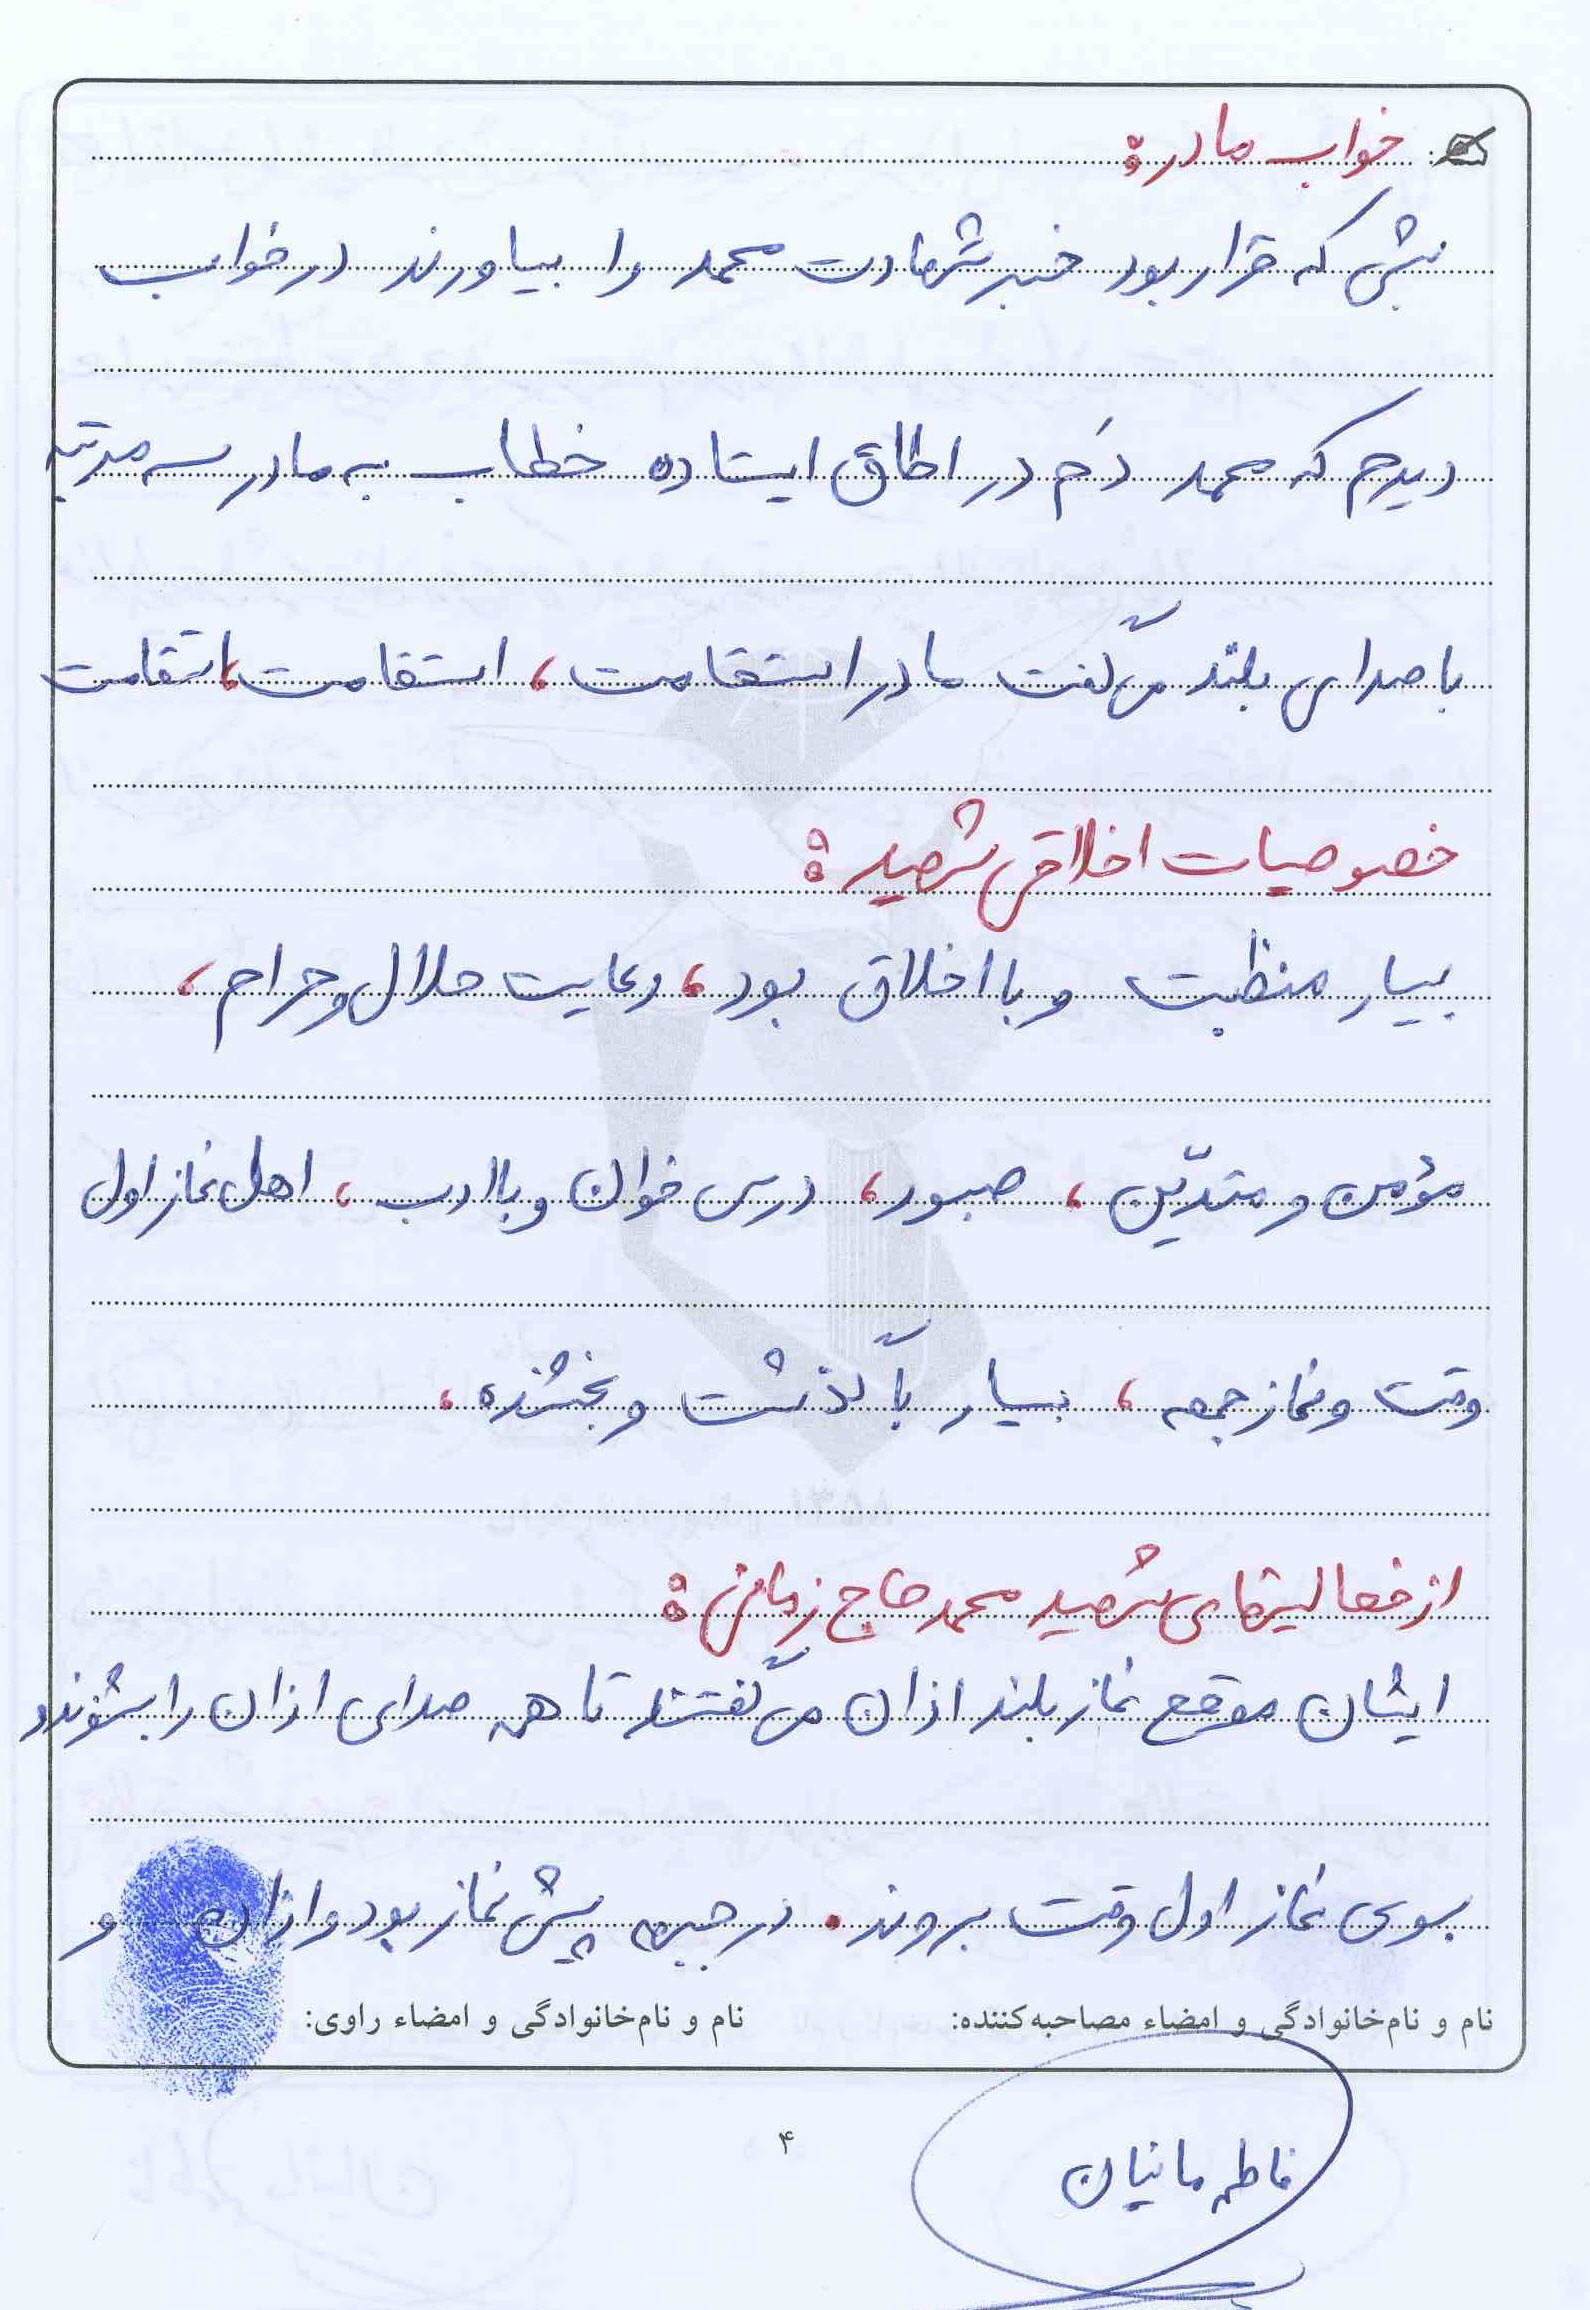 خواب مادر:
شبی که قرار بود خبر شهادت محمد را بیاورند در خواب
دیدم که محمد دَم در اطاق ایستاده خطاب به مادر سه مرتبه
با صدای بلند می‌گفت مادر استقامت، استقامت، استقامت
خصوصیات اخلاقی شهید:
بسیار منظبت و با اخلاق بود، رعایت حلال و حرام،
مؤمن و متدیّن، صبور، درس خوان و با ادب، اهل نماز اول
وقت و نماز جمعه، بسیار با گذشت و بخشنده،
از فعالیتهای شهید محمد حاج زمانی:
ایشان موقع نماز بلند اذان می‌گفتند تا همه صدای اذان را بشنوند و
بسوی نماز اول وقت بروند. در جبهه پیش نماز بود و اذان و
نام و نام‌خانوادگی و امضاء مصاحبه‌کننده: نام و نام‌خانوادگی و امضاء راوی:
فاطمه مانیان
۴